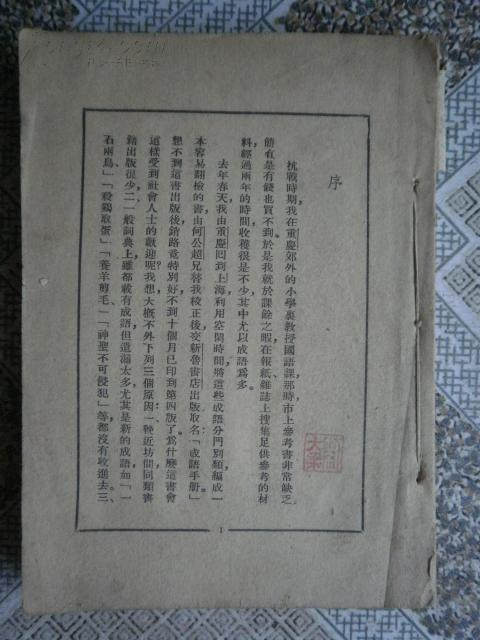 序
抗戰時期，我在重慶郊外的小學裏敎授國語課，那時市上參考書非常缺乏，
節有是有錢也買不到。於是我就於課餘之暇，在報紙雜誌上搜集足供參考的材
料，經過兩年的時間，收穫很是不少，其中尤以成語爲多。
去年春天，我由重慶回到上海，利用空閒時間，將這些成語分門別類，編成一
本容易翻檢的書，由何公超兄替我校正後，交新魯書店出版，取名「成語手册」。
想不到這書出版後，銷路竟特別好，不到十個月，已印到第四版了。爲什麼這書會
這樣受到社會人士的歡迎呢？我想，大概不外下列三個原因：一、輓近坊間同類書
籍出版很少；二、一般詞典上雖都載有成語，但遺漏太多，尤其是新的成語，如「一
石兩鳥」、「殺鷄取蛋」、「養羊剪毛」、「神聖不可侵犯」等，都沒有收進去；三、
1